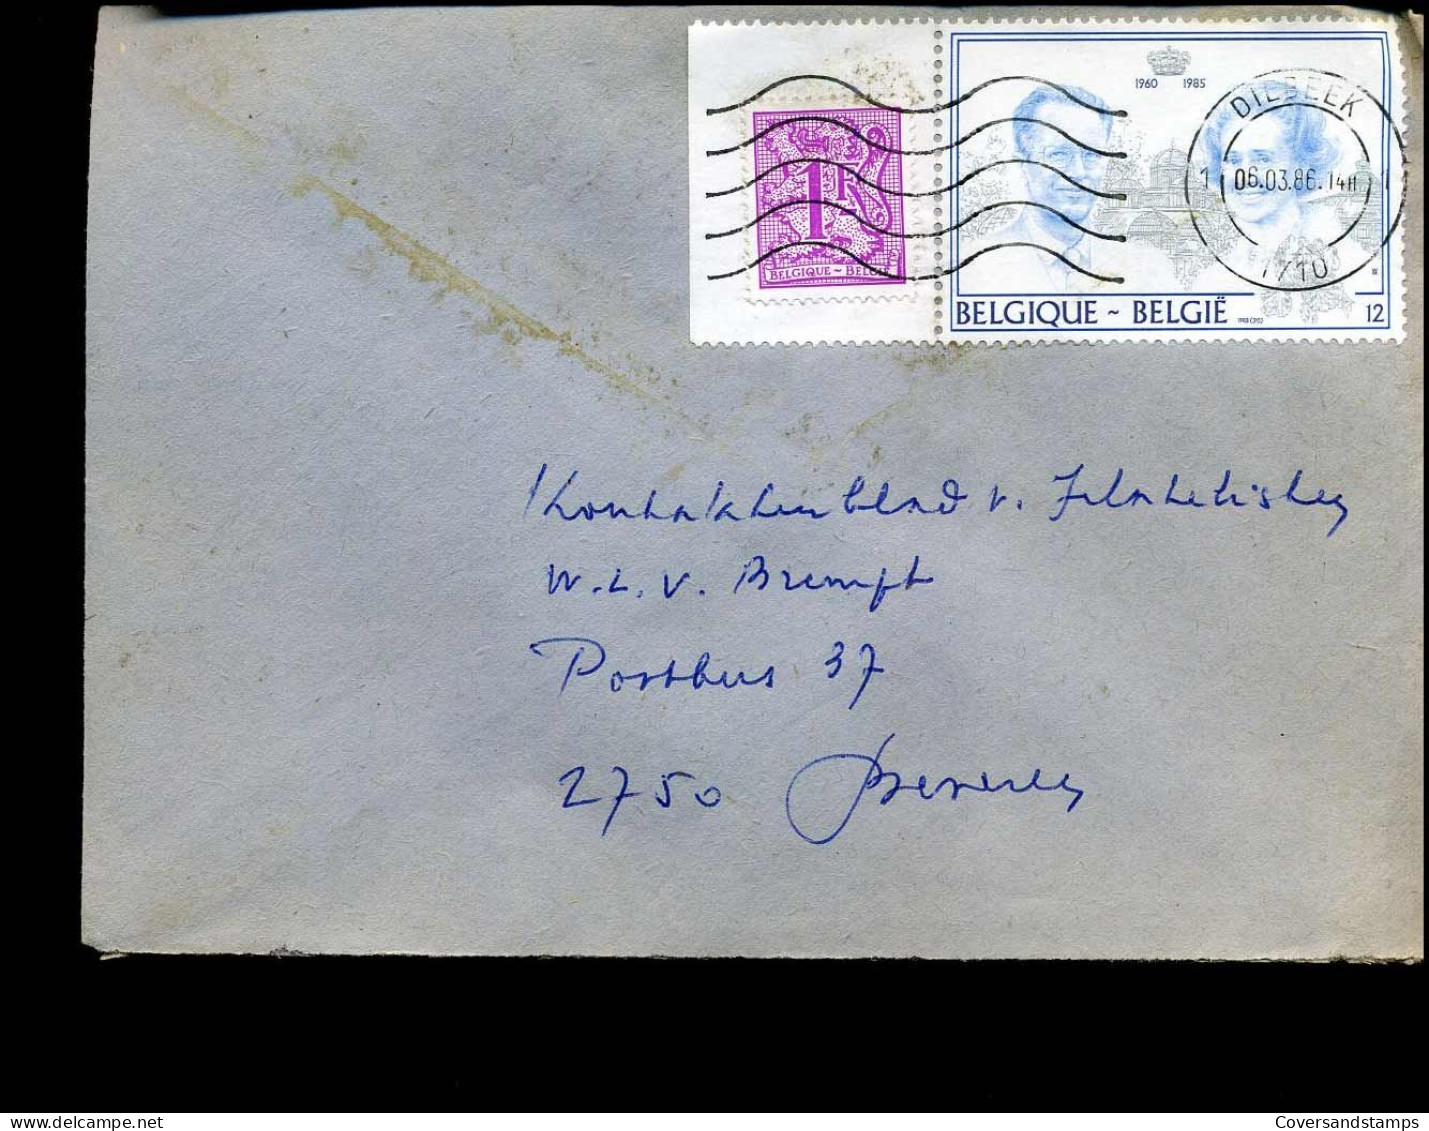 1960 1985
DILBEEK
1 06.03.86.14H 1
1710
1
BELGIQUE ~ BELGIË
BELGIQUE ~ BELGIË
12
Kontaktenblad v. Filatelisten
W.L.V. Brempt
Postbus 37
2750 Beveren
Coversandstamps